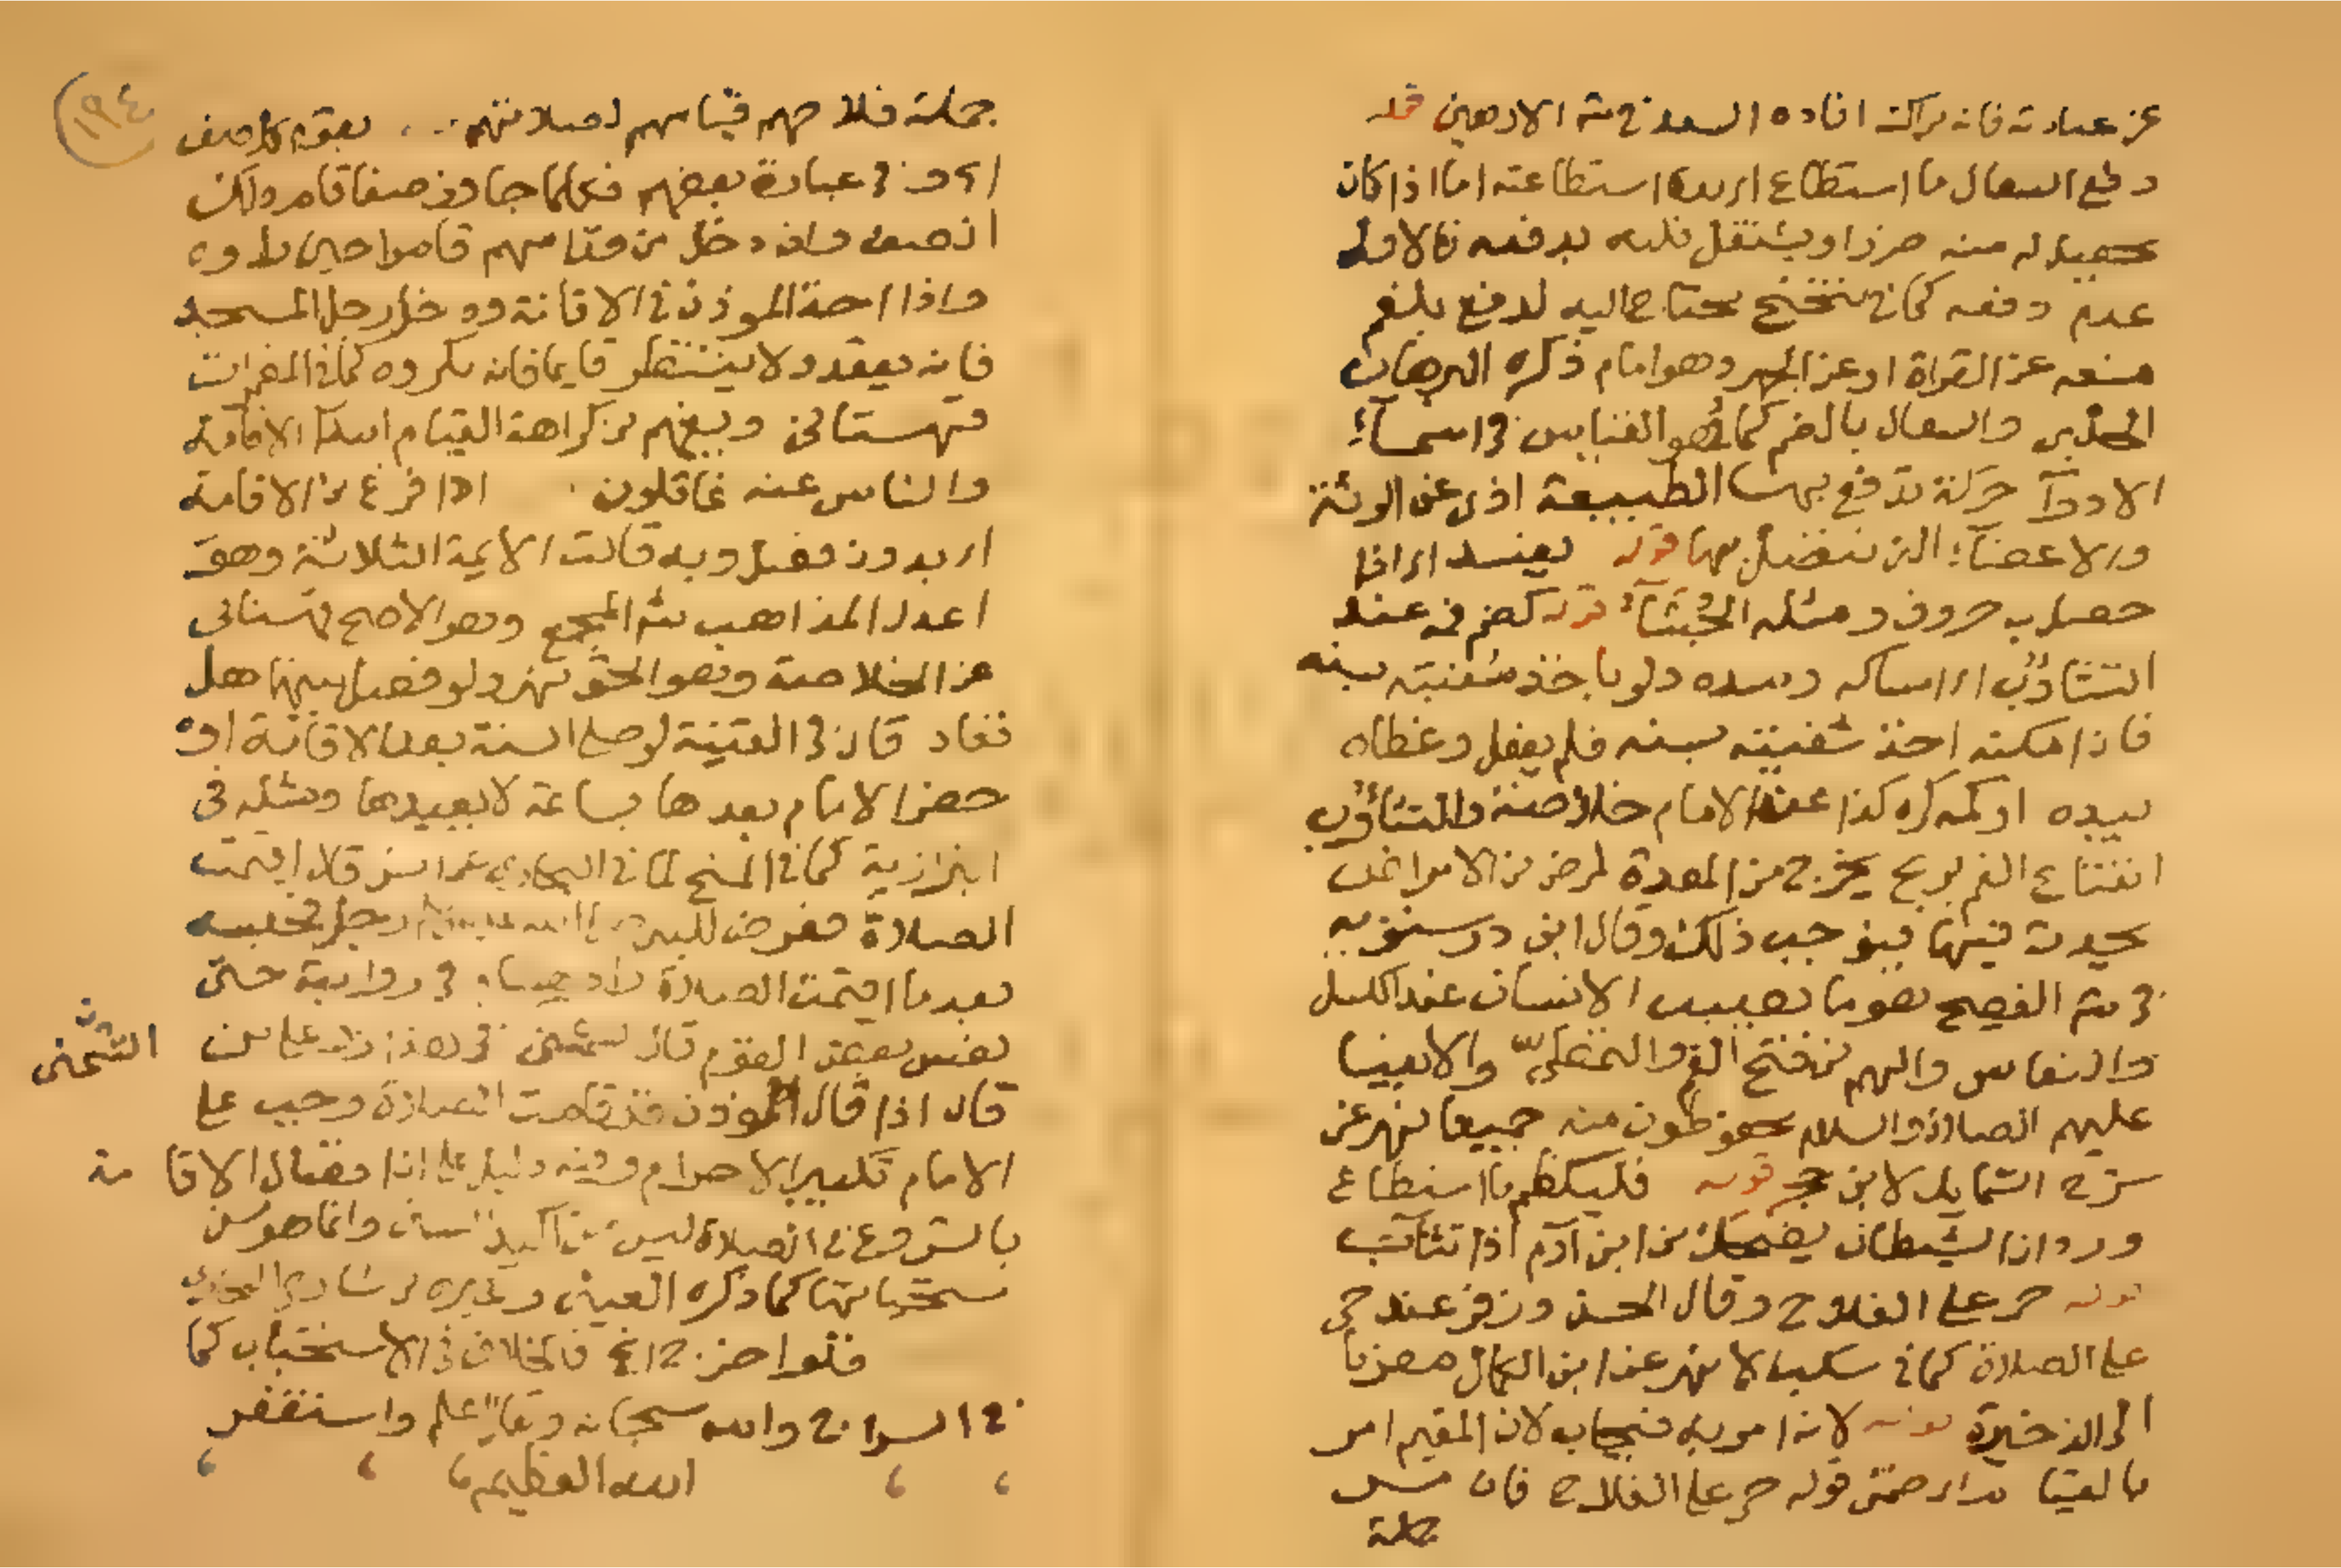 عن عبادته فانه يراك افاده السعد في شرح الاربعين قوله
دفع السعال ما استطاع اي مدة استطاعته اما اذا كان
يحصل له منه ضرر او يشتغل قلبه بدفعه فالاولى
عدم دفعه كما في تنحنح يحتاج اليه لدفع بلغم
منعه عن القراة او عن الجهر وهو امام ذكره البرهان
الحلبي والسعال بالضم كما هو القياس في اسماء
الادوآ حركة تدفع بها الطبيعة اذى عن الرئة
والاعضاء التي تتصل بها قوله يفسد اي اذا
حصل به حروف ومثله الجُشآء قوله كضم فم عند
التثاؤب اي امساكه وسده ولو باخذ شفتيه بسنه
فان امكنه اخذ شفتيه بسنه فلم يفعل وغطاه
بيده او كمه كره كذا عن الامام خلاصة والتثاؤب
انفتاح الفم بريح يخرج من المعدة لمرض من الامراض
يحدث فيها فيوجب ذلك وقال ابن درستويه
في شرح الفصيح هو ما يصيب الانسان عند الكسل
والنعاس والهم من فتح الفم والتمطي والانبيا
عليهم الصلاة والسلام محفوظون منه جميعا نهر عن
شرح الشمايل لابن حجر قوله فليكظم ما استطاع
ورد ان الشيطان يضحك من ابن آدم اذا تثآئب
قوله حي على الفلاح وقال الحسن وزفر عند حي
على الصلاة كما في سكب الانهر عن ابن الكمال معزيا
الى الذخيرة قوله لانه امر به فيجاب لان المقيم امر
بالقيام اي ضمن قوله حي على الفلاح فان
جملة
١٩٤
جملة فلاحهم قيامهم لصلاتهم يقوم كل صف
اي وفي عبارة بعضهم فكلما جاوز صفا قام ولكن
انصف وان دخل من قدامهم قاموا حين راوه
واذا اخذ الموذن في الاقامة ودخل رجل المسجد
فانه يقعد ولا ينتظر قايما فانه مكروه كما في المضمرات
قهستاني ويفهم من كراهة القيام ابتداء الاقامة
والناس عنه غافلون اذا فرغ من الاقامة
اي بدون فصل وبه قالت الايمة الثلاثة وهو
اعدل المذاهب شرح المجمع وهو الاصح قهستاني
عن الخلاصة وهو الحق نهر ولو فصل بينها هل
تعاد قال في القنية لو صلى السنة بعد الاقامة او
حضر الامام بعدها بساعة لا يعيدها ومثله في
البزازية كما في المنح لما في البخاري عن انس قال اقيمت
الصلاة فعرض للنبي صلى الله عليه وسلم رجل فحبسه
بعد ما اقيمت الصلاة زاد هشام في رواية حتى
نعس بعض القوم قال الشمني في هذا رد على من
الشمني
قال اذا قال الموذن قد قامت الصلاة وجب على
الامام تكبير الاحرام وفيه دليل على ان اتصال الاقامة
بالشروع في الصلاة ليس من اكيد السنن وانما هو من
مستحباتها كما ذكره العيني وغيره من شارحي البخاري
فالخلاف في الاستحباب كما
في السراج والله سبحانه وتعالى اعلم واستغفر
الله العظيم